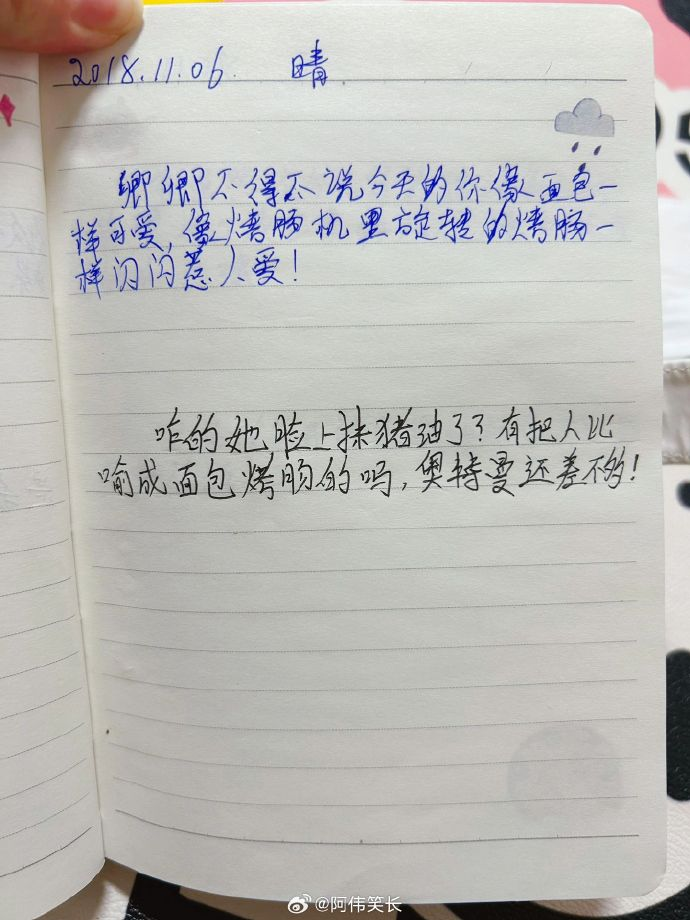 2018.11.06 晴
卿卿不得不说今天的你像面包一
样可爱,像烤肠机里旋转的烤肠一
样闪闪惹人爱!
咋的她脸上抹猪油了?有把人比
喻成面包烤肠的吗,奥特曼还差不多!
@阿伟笑长